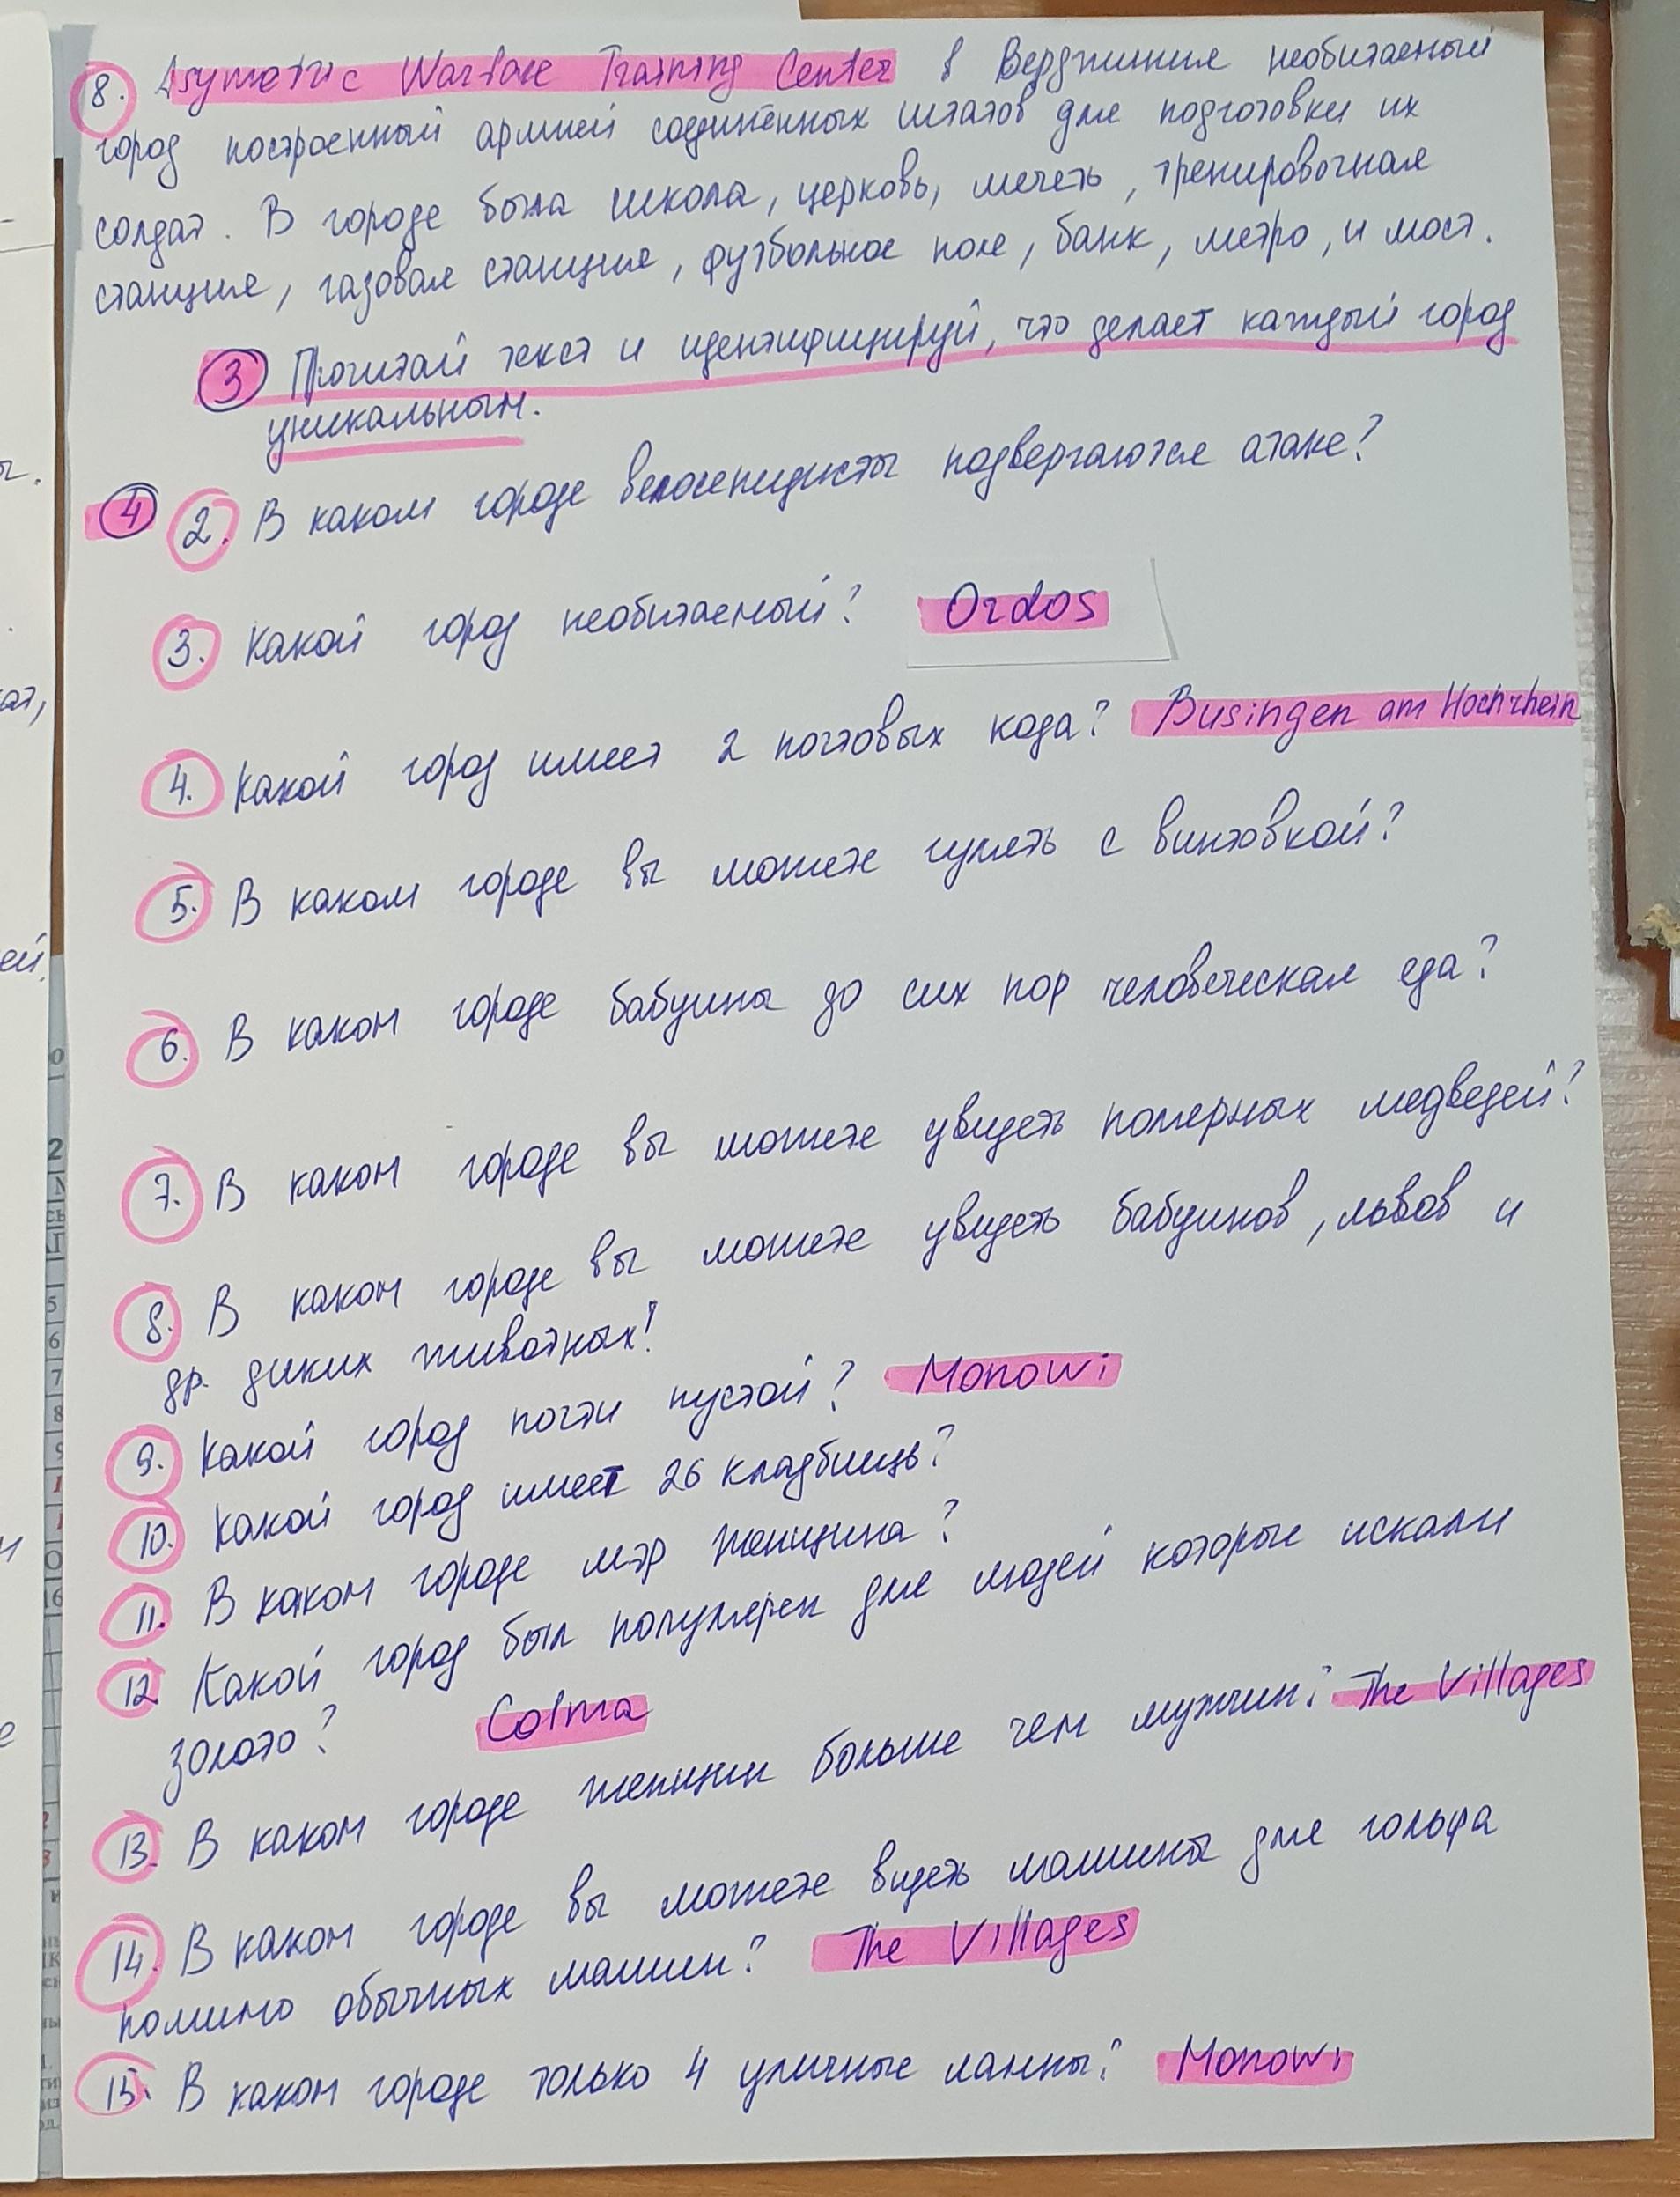 8. Asymetric Warfare Training Center в Верджинии необитаемый
город построенный армией соединённых штатов для подготовки их
солдат. В городе была школа, церковь, мечеть, тренировочная
станция, газовая станция, футбольное поле, банк, метро, и мост.
3 Прочитай текст и идентифицируй, что делает каждый город
уникальным.
4 2. В каком городе велосипедисты подвергаются атаке?
3. Какой город необитаемый? Ordos
4. Какой город имеет 2 почтовых кода? Busingen am Hochrhein
5. В каком городе вы можете гулять с винтовкой?
6. В каком городе бабуины до сих пор человеческая еда?
7. В каком городе вы можете увидеть полярных медведей?
8. В каком городе вы можете увидеть бабуинов, львов и
др. диких животных!
9. Какой город почти пустой? Monowi
10. Какой город имеет 26 кладбищь?
11. В каком городе мэр женщина?
12 Какой город был популярен для людей которые искали
золото? Colma
13. В каком городе женщин больше чем мужчин? The Villages
14. В каком городе вы можете видеть машины для гольфа
помимо обычных машин? The Villages
15. В каком городе только 4 уличные лампы? Monowi
ей.
ат,
0
2
5
6
7
8
9
16